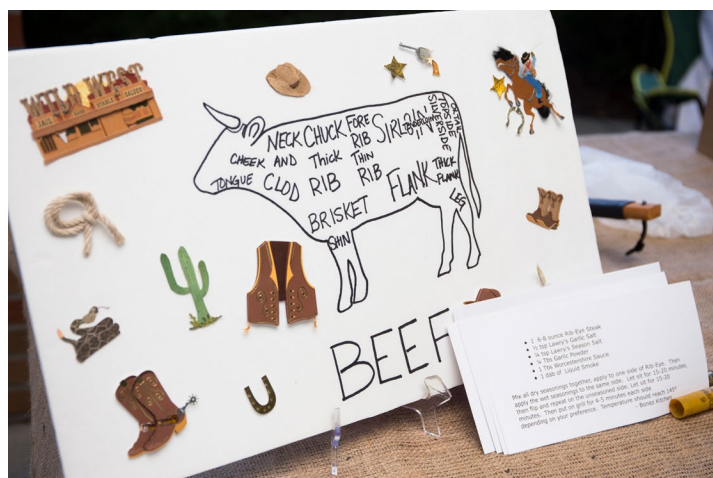 WILD WEST
JAIL BANK STABLE SALOON
NECK CHUCK FORE RIB SIRLOIN TENDERLOIN TOPSIDE SILVERSIDE OXTAIL
CHEEK AND THICK THIN
TONGUE CLOD RIB RIB FLANK THICK FLANK
BRISKET LEG
SHIN
BEEF
2 6-8 ounce Rib-Eye Steak
½ tsp Lawry's Garlic Salt
¼ tsp Lawry's Season Salt
¼ Tbs Garlic Powder
1 Tbs Worcestershire Sauce
1 dab of Liquid Smoke
Mix all dry seasonings together, apply to one side of Rib-Eye. Then
apply the wet seasonings to the same side. Let sit for 15-20 minutes,
then flip and repeat on the unseasoned side. Let sit for 15-20
minutes. Then put on grill for 4-5 minutes each side
depending on your preference. Temperature should reach 145°
- Bones Kitchen